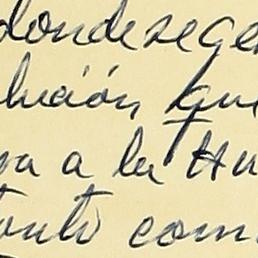 donde se ge
lución, que
va a la Hu
tanto com